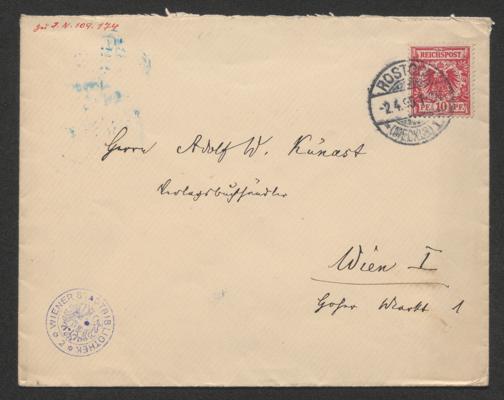 Zu J.N. 109.174
REICHSPOST
PF. 10 PF.
ROSTOCK
2.4.9
(MECKLB) 1
Herrn Adolf W. Künast
Verlagsbuchhändler
Wien I
Hoher Markt 1
WIENER STADTBIBLIOTHEK